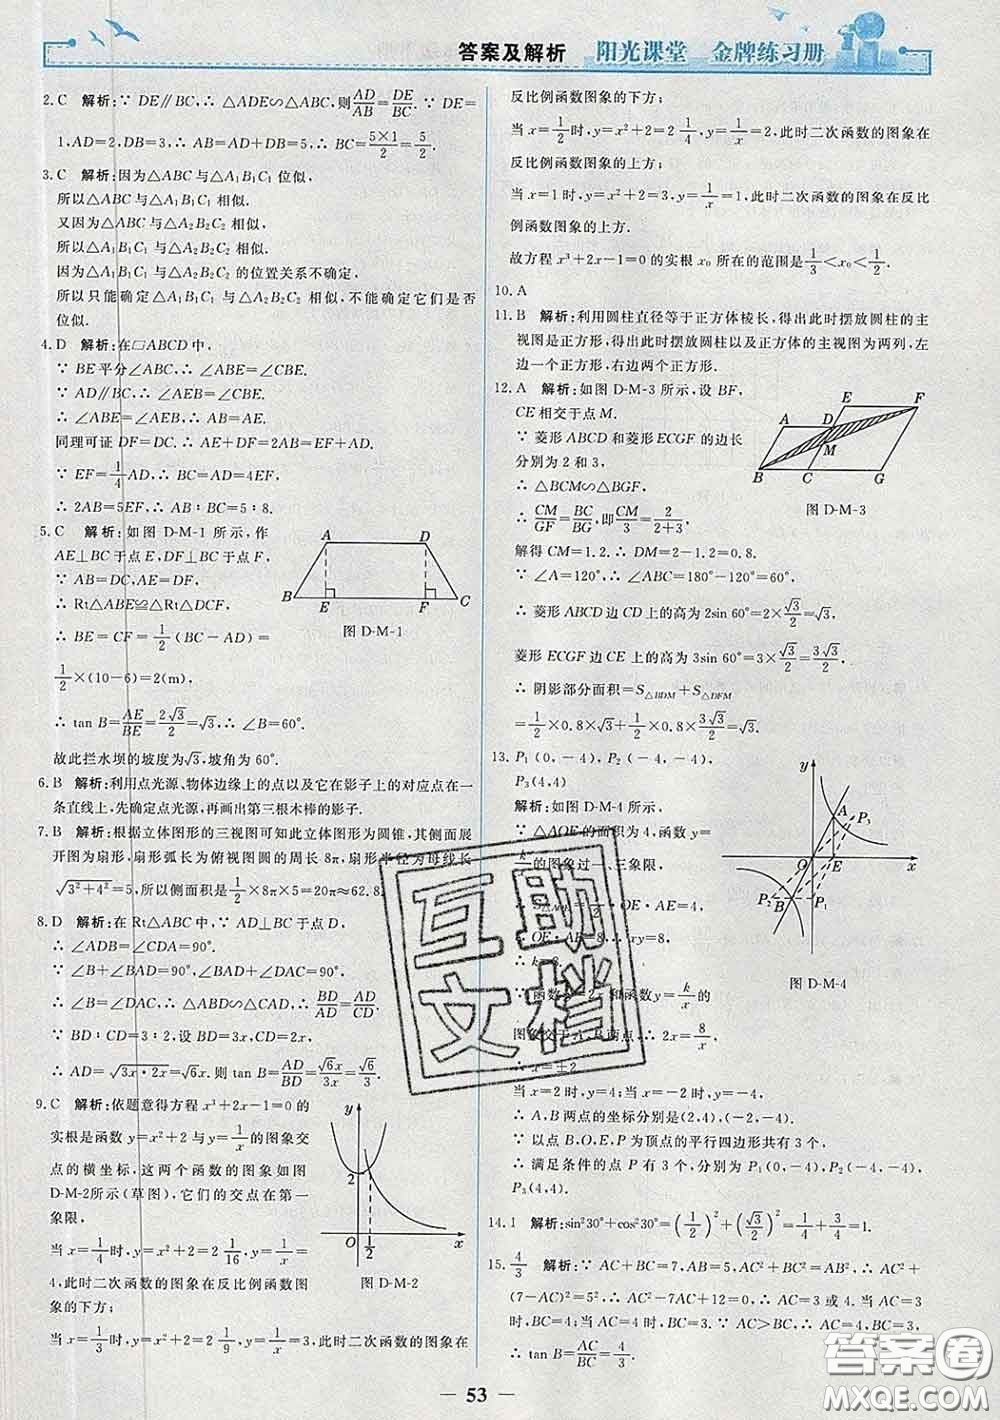 答案及解析 阳光课堂 金牌练习册
2. C 解析:∵ DE∥BC,∴ △ADE∽△ABC,则AD/AB=DE/BC. ∵ DE=
1,AD=2,DB=3,∴ AB=AD+DB=5,∴ BC=5×1/2=5/2.
3. C 解析:因为△ABC与△A₁B₁C₁位似,
所以△ABC与△A₁B₁C₁相似.
又因为△ABC与△A₂B₂C₂相似,
所以△A₁B₁C₁与△A₂B₂C₂相似.
因为△A₁B₁C₁与△A₂B₂C₂的位置关系不确定,
所以只能确定△A₁B₁C₁与△A₂B₂C₂相似,不能确定它们是否
位似.
4. D 解析:在▱ABCD中,
∵ BE平分∠ABC,∴ ∠ABE=∠CBE.
∵ AD∥BC,∴ ∠AEB=∠CBE.
∴ ∠ABE=∠AEB,∴ AB=AE.
同理可证DF=DC. ∴ AE+DF=2AB=EF+AD.
∵ EF=1/4AD,∴ BC=AD=4EF,
∴ 2AB=5EF,∴ AB∶BC=5∶8.
5. C 解析:如图D-M-1所示,作
AE⊥BC于点E,DF⊥BC于点F,
∵ AB=DC,AE=DF,
∴ Rt△ABE≌Rt△DCF,
∴ BE=CF=1/2(BC-AD)=
1/2×(10-6)=2(m),
∴ tan B=AE/BE=2√3/2=√3,∴ ∠B=60°.
故此拦水坝的坡度为√3,坡角为60°.
A D
B E F C
图 D-M-1
6. B 解析:利用点光源、物体边缘上的点以及它在影子上的对应点在一
条直线上,先确定点光源,再画出第三根木棒的影子.
7. B 解析:根据立体图形的三视图可知此立体图形为圆锥,其侧面展
开图为扇形,扇形弧长为俯视图圆的周长8π,扇形半径为母线长
√(3²+4²)=5,所以侧面积是1/2×8π×5=20π≈62.8.
8. D 解析:在Rt△ABC中,∵ AD⊥BC于点D,
∴ ∠ADB=∠CDA=90°.
∵ ∠B+∠BAD=90°,∠BAD+∠DAC=90°,
∴ ∠B=∠DAC,∴ △ABD∽△CAD,∴ BD/AD=AD/CD.
∵ BD∶CD=3∶2,设BD=3x,CD=2x,
∴ AD=√(3x·2x)=√6x.则tan B=AD/BD=√6x/3x=√6/3.
9. C 解析:依题意得方程x³+2x-1=0的
实根是函数y=x²+2与y=1/x的图象交
点的横坐标,这两个函数的图象如图
D-M-2所示(草图),它们的交点在第一
象限,
当x=1/4时,y=x²+2=2 1/16,y=1/x=
4,此时二次函数的图象在反比例函数图
象的下方;
y
2
O 1/2 x
图 D-M-2
当x=1/3时,y=x²+2=2 1/9,y=1/x=3,此时二次函数的图象在
反比例函数图象的下方;
当x=1/2时,y=x²+2=2 1/4,y=1/x=2,此时二次函数的图象在
反比例函数图象的上方;
当x=1时,y=x²+2=3,y=1/x=1,此时二次函数的图象在反比
例函数图象的上方.
故方程x³+2x-1=0的实根x₀所在的范围是1/3<x₀<1/2.
10. A
11. B 解析:利用圆柱直径等于正方体棱长,得出此时摆放圆柱的主
视图是正方形,得出此时摆放圆柱以及正方体的主视图为两列,左
边一个正方形,右边两个正方形.
12. A 解析:如图D-M-3所示,设BF,
CE相交于点M.
∵ 菱形ABCD和菱形ECGF的边长
分别为2和3,
∴ △BCM∽△BGF,
∴ CM/GF=BC/BG,即CM/3=2/(2+3),
E F
A D
M
B C G
图 D-M-3
解得CM=1.2.∴ DM=2-1.2=0.8.
∵ ∠A=120°,∴ ∠ABC=180°-120°=60°,
∴ 菱形ABCD边CD上的高为2sin 60°=2×√3/2=√3,
菱形ECGF边CE上的高为3sin 60°=3×√3/2=3√3/2.
∴ 阴影部分面积=S△BDM+S△DFM
=1/2×0.8×√3+1/2×0.8×3√3/2=√3.
13. P₁(0,-4),P₂(-4,-4),
P₃(4,4)
解析:如图D-M-4所示,
∵ △AOE的面积为4,函数y=
k/x的图象过一、三象限,
·OE·AE=4,
∴ OE·AE=8,∴ xy=8,
∴ k=8.
∵ 函数y=2x和函数y=k/x的
图象交于A,B两点,∴ 2x=8/x,
∴ x=±2.
y
A P₃
O E x
P₂ B P₁
图 D-M-4
当x=2时,y=4;当x=-2时,y=-4,
∴ A,B两点的坐标分别是(2,4),(-2,-4).
∵ 以点B,O,E,P为顶点的平行四边形共有3个,
∴ 满足条件的点P有3个,分别为P₁(0,-4),P₂(-4,-4),
P₃(4,4).
14. 1 解析:sin²30°+cos²30°=(1/2)²+(√3/2)²=1/4+3/4=1.
15. 4/3 解析:∵ AC+BC=7,AB=5,AC²+BC²=AB²,∴ AC²+
(7-AC)²=5²,∴ AC²-7AC+12=0,∴ AC=3或4.当AC=3
时,BC=4;当AC=4时,BC=3. ∵ AC>BC,∴ AC=4,BC=3,
∴ tan B=AC/BC=4/3.
互助文档
答案圈
MXQE.COM
53